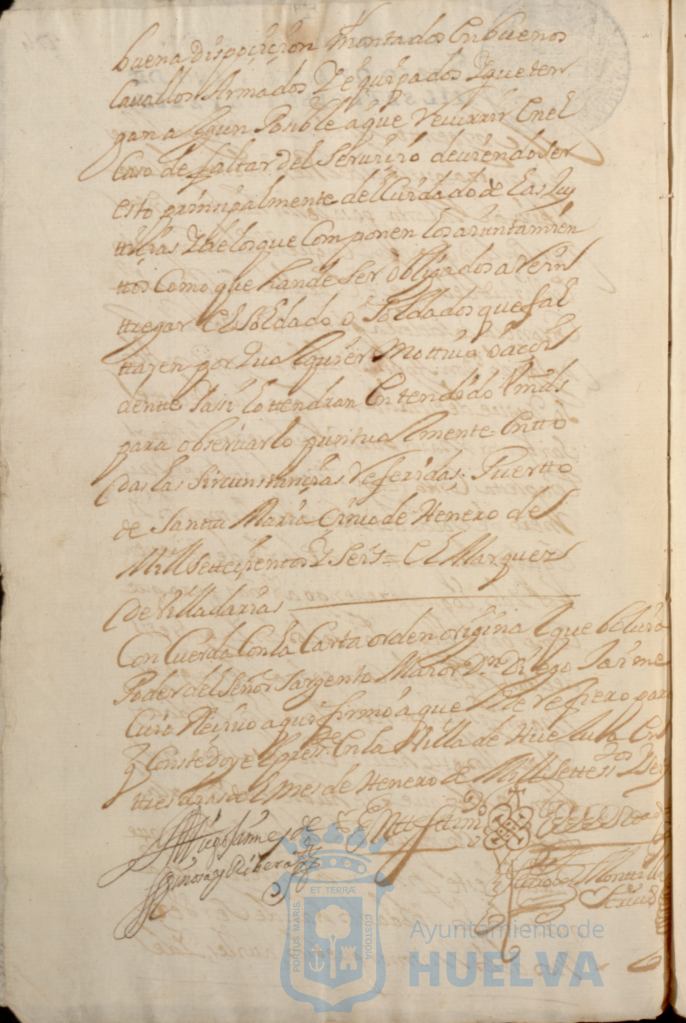 buena disposiçion montados en buenos
Cavallos Armados Y equipados Y que ten
gan a ygun Posible a que Recivirir En el
Caso de faltar del Servizio deviendo ser
esto prinsipalmente del Cuidado de Las Jus
ttiçias Y de los que Componen los ayuntamien
ttos Como que han de Ser obligados a Rein
ttregar El Soldado o Soldados que fal
ttaren por qualquier Mottivo o açci
dente Y asi lo ttendran Enttendido Vmds
para observarlo puntualmente en tto
das las Sircunstançias Referidas. Puertto
de Santta Maria Cinco de Henero de
Mill settecientos Y Seis = El Marques
de Villadarias
Con Cuerda Con la Cartta orden original que bolvio a
Poder del Señor Sargento Maior Dn Diego Jaime
Cuio Reçivo aqui firmó a que Me refiero para
q Conste doy el presste En la Villa de Huelva En
ttres dias del mes de Henero de Mill Settess Y Seis
Diego Jaime
y Ribera
En testtimo
de Verdad
PORTUS MARIS
ET TERRÆ
CUSTODIA
Ayuntamiento de
HUELVA